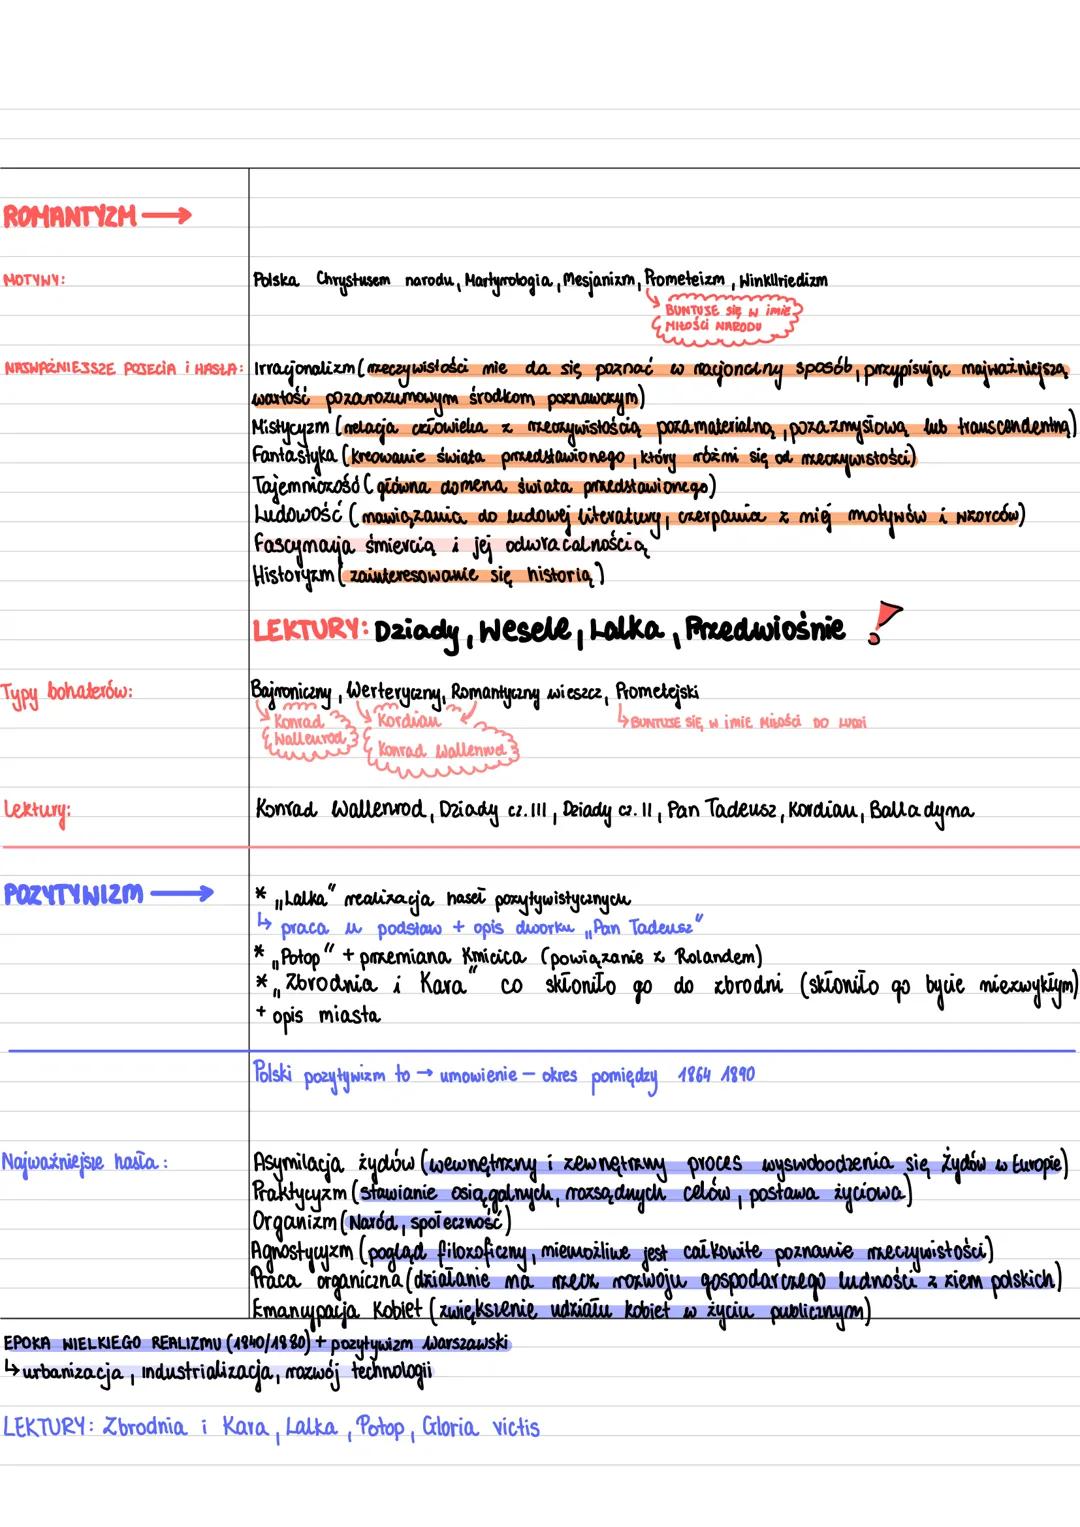 ROMANTYZM →
MOTYWY: Polska Chrystusem narodu, Martyrologia, Mesjanizm, Prometeizm, Winkllriedizm
↳ BUNTUJE SIĘ W imię
MIŁOŚCI NARODU
NAJWAŻNIEJSZE POJĘCIA i HASŁA: Irracjonalizm (rzeczywistości nie da się poznać w racjonalny sposób, przypisując najważniejszą
wartość pozarozumowym środkom poznawczym)
Mistycyzm (relacja człowieka z rzeczywistością pozamaterialną, pozazmysłową lub transcendentną)
Fantastyka (kreowanie świata przedstawionego, który różni się od rzeczywistości)
Tajemniczość (główna domena świata przedstawionego)
Ludowość (nawiązania do ludowej literatury, czerpania z niej motywów i wzorców)
Fascynacja śmiercią i jej odwracalnością
Historyzm (zainteresowanie się historią)
LEKTURY: Dziady, Wesele, Lalka, Przedwiośnie !
Typy bohaterów: Bajroniczny, Werteryczny, Romantyczny wieszcz, Prometejski
↳ Konrad Wallenrod
↳ Kordian
Konrad Wallenrod
↳ BUNTUJE SIĘ W imię MIŁOŚCI DO LUDZI
Lektury: Konrad Wallenrod, Dziady cz. III, Dziady cz. II, Pan Tadeusz, Kordian, Balladyna
POZYTYWIZM → * „Lalka" realizacja haseł pozytywistycznych
↳ praca u podstaw + opis dworku „Pan Tadeusz"
* „Potop" + przemiana Kmicica (powiązanie z Rolandem)
* „Zbrodnia i Kara" co skłoniło go do zbrodni (skłoniło go bycie niezwykłym)
+ opis miasta
Polski pozytywizm to → umowienie – okres pomiędzy 1864 1890
Najważniejsze hasła: Asymilacja żydów (wewnętrzny i zewnętrzny proces wyswobodzenia się Żydów w Europie)
Praktycyzm (stawianie osiągalnych, rozsądnych celów, postawa życiowa)
Organizm (Naród, społeczność)
Agnostycyzm (pogląd filozoficzny, niemożliwe jest całkowite poznanie rzeczywistości)
Praca organiczna (działanie na rzecz rozwoju gospodarczego ludności z ziem polskich)
Emancypacja Kobiet (zwiększenie udziału kobiet w życiu publicznym)
EPOKA WIELKIEGO REALIZMU (1840/1880) + pozytywizm Warszawski
↳ urbanizacja, industrializacja, rozwój technologii
LEKTURY: Zbrodnia i Kara, Lalka, Potop, Gloria victis